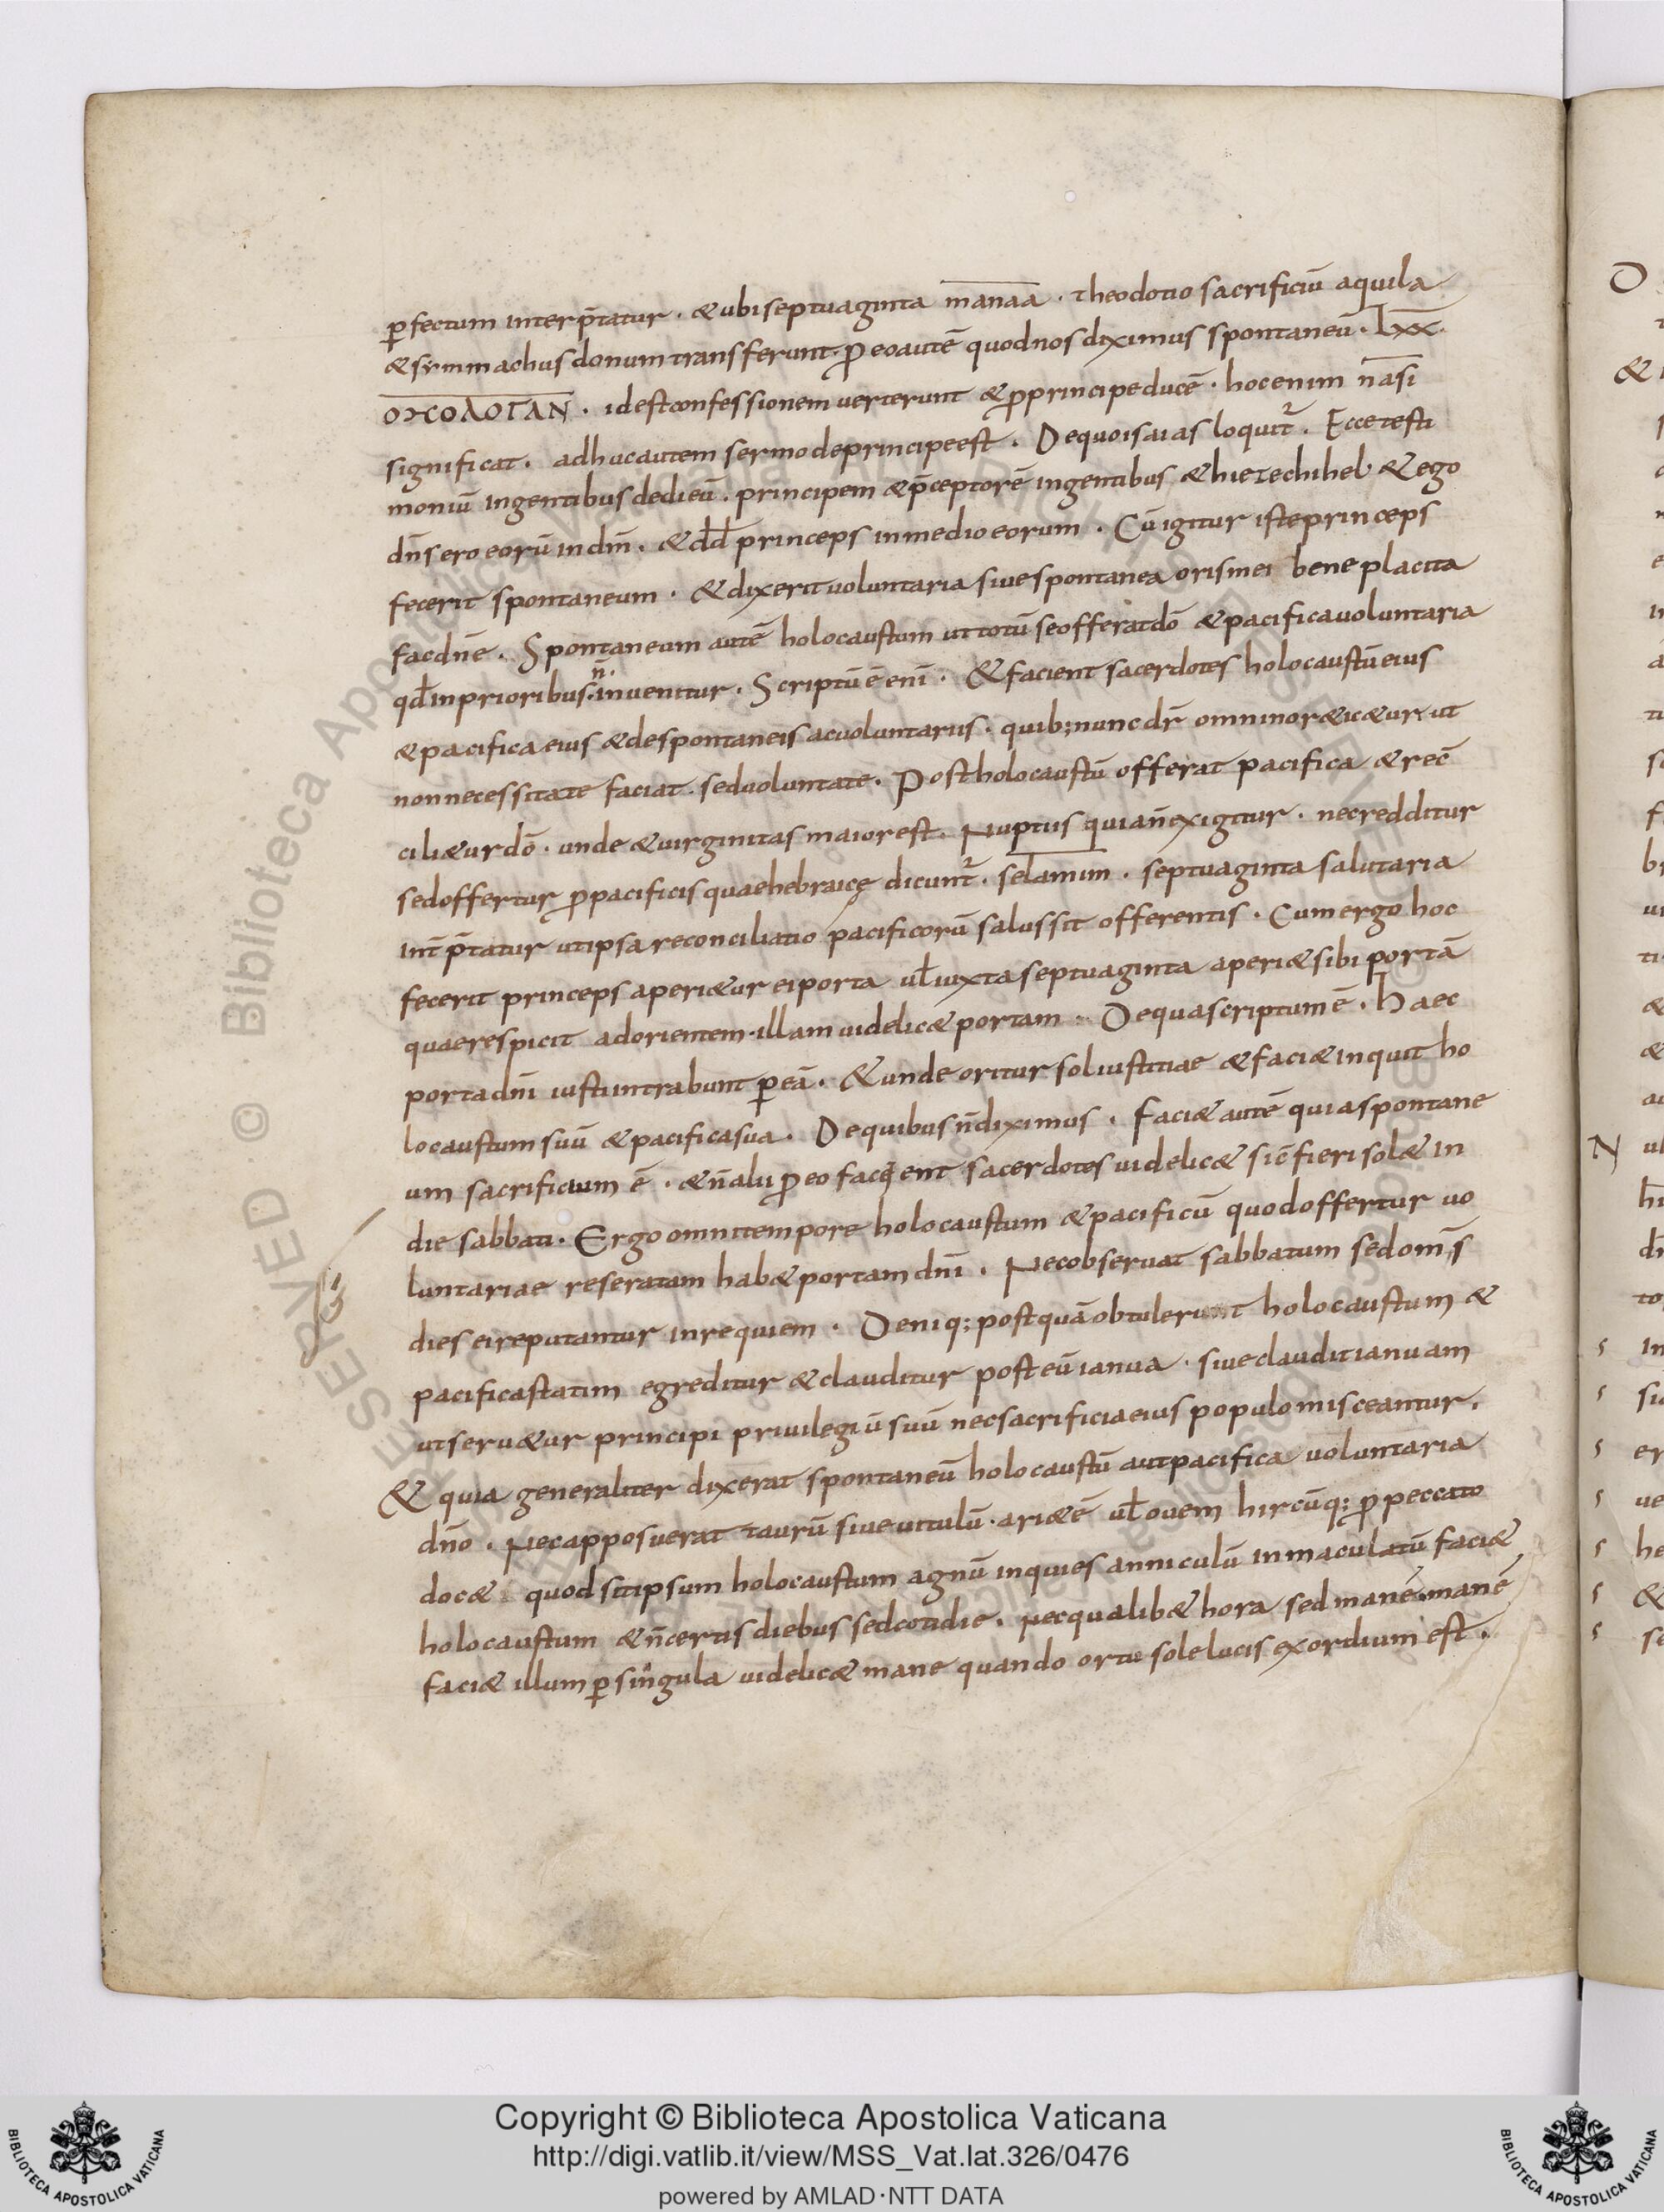 p̄fectum interp̄tatur · & ubi septuaginta manaa · theodotio sacrificiū aquila
& symmachus donum transferunt · Pro eo autē quod nos diximus spontaneū · Lxx
ΟϽϹΟΛΟΓΑΝ · id est confessionem uerterunt & pro principe ducē · hoc enim nasi
significat · adhuc autem sermo de principe est · De quo isaias loquit̄ · Ecce testi
moniū in gentibus dedi eū · principem & p̄ceptorē in gentibus & hiezechihel & ego
dn̄s ero eorū in dm̄ · & dd̄ princeps in medio eorum · Cū igitur iste princeps
fecerit spontaneum · & dixerit uoluntaria siue spontanea oris mei bene placita
fac dn̄e · Spontaneum autē holocaustum ut totū se offerat dō & pacifica uoluntaria
qd̄ in prioribus n̄ inuenitur · Scriptū ē enī · & facient sacerdotes holocaustū eius
& pacifica eius & de spontaneis ac uoluntariis · quib; nunc dr̄ omnino r&ic&ur ut
non necessitate faciat · sed uoluntate · Post holocaustū offerat pacifica & recō
cili&ur dō · unde & uirginitas maior est · Nuptiis quia n̄ exigitur · nec redditur
sed offertur pro pacificis quae hebraicę dicunt̄ · selamim · septuaginta salutaria
int̄p̄tatur ut ipsa reconciliatio pacificorū salus sit offerentis · Cum ergo hoc
fecerit princeps aperi&ur ei porta ul̄ iuxta septuaginta aperi& sibi portā
quae respicit ad orientem · illam uidelic& portam · De qua scriptum ē · haec
porta dn̄i iusti intrabunt p̄ eā · & unde oritur sol iustitiae & faci& inquit ho
locaustum suū & pacifica sua · De quibus n̄ diximus · faci& autē quia spontane
um sacrificium ē · & n̄ alii pro eo facient sacerdotes uidelic& sic̄ fieri sol& in
die sabbati · Ergo omni tempore holocaustum & pacificū quod offertur uo
luntariae reseratam hab& portam dn̄i · Nec obseruat sabbatum sed om̄s
dies ei reputantur in requiem · Deniq; postquā obtulerunt holocaustum &
pacifica statim egreditur & clauditur post eū ianua · siue claudit ianuam
ut seru&ur principi priuilegiū suū nec sacrificia eius populo misceantur ·
& quia generaliter dixerat spontaneū holocaustū aut pacifica uoluntaria
dn̄o · Nec apposuerat taurū siue uitulū · ari&ē ul̄ ouem hircūq; pro peccato
doc& quod sit ipsum holocaustum agnū inquies anniculū inmaculatū faci&
holocaustum & n̄ certis diebus sed cotidie · Nec qualib& hora sed manē manē
faci& illum p̄ singula uidelic& mane quando ortu sole lucis exordium est ·
Copyright © Biblioteca Apostolica Vaticana
http://digi.vatlib.it/view/MSS_Vat.lat.326/0476
powered by AMLAD·NTT DATA
BIBLIOTECA APOSTOLICA VATICANA
BIBLIOTECA APOSTOLICA VATICANA